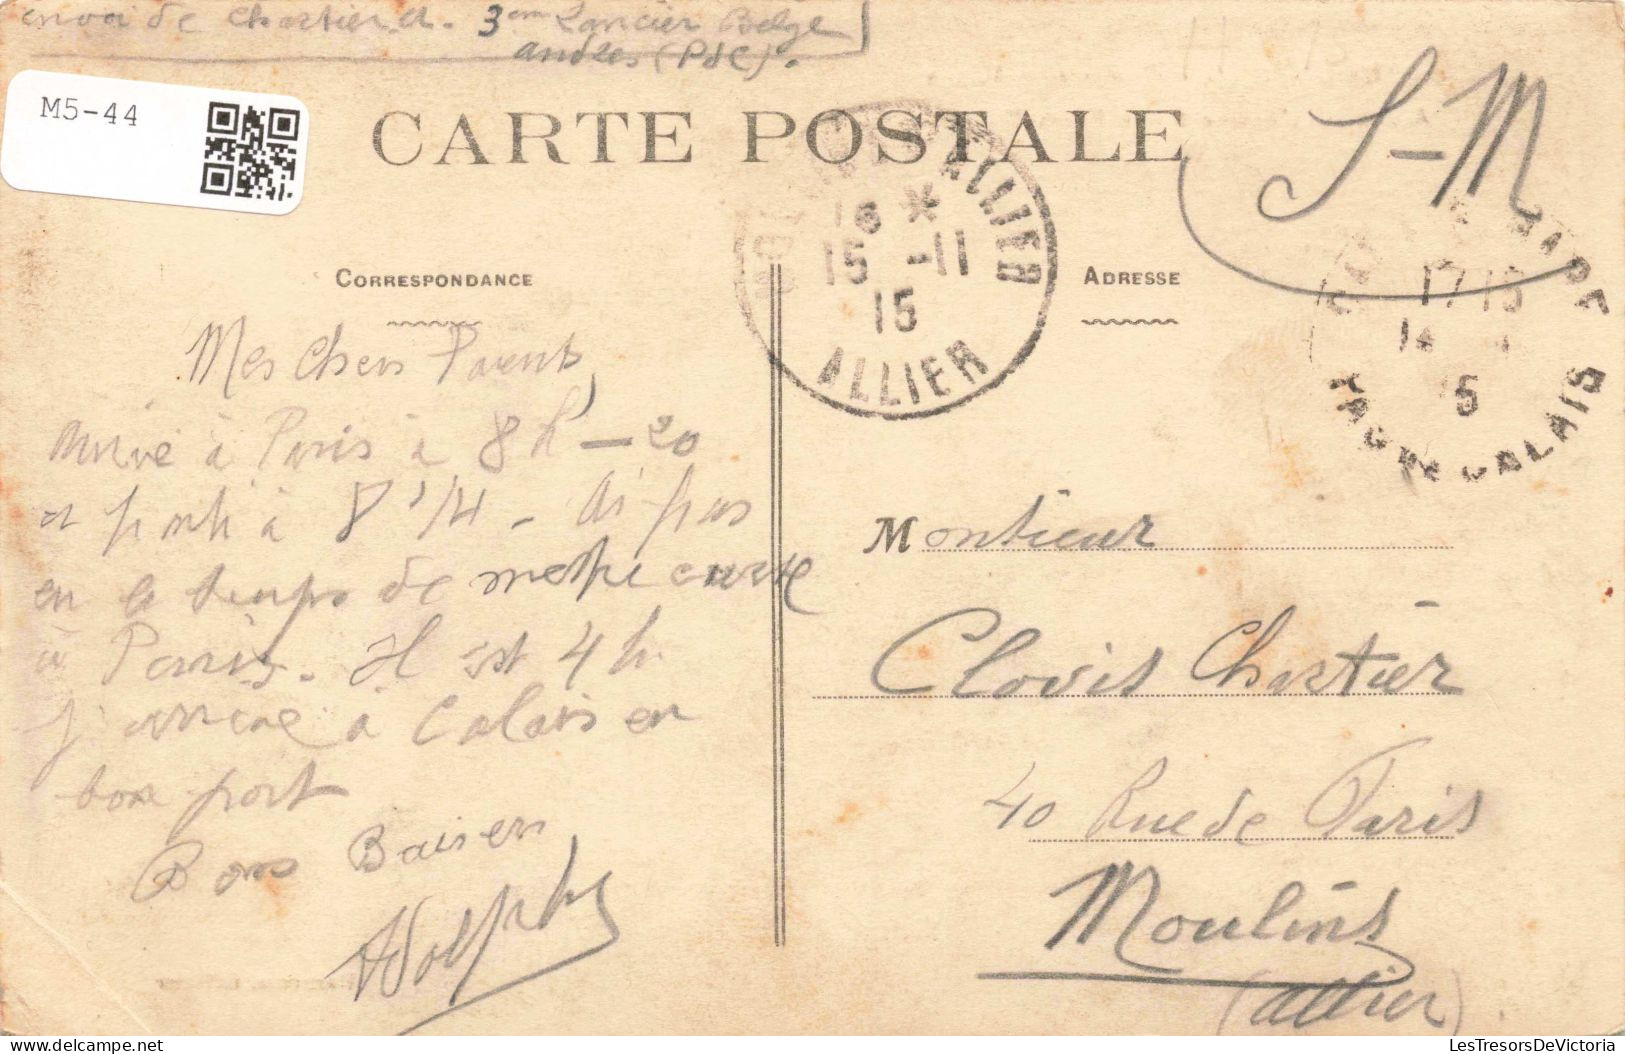 envoi de Chartier A. 3em Lancier Belge
andres (PdC).
M5-44
CARTE POSTALE
S-M
ALLIER
16 *
15 -11
15
ALLIER
GARE
17 15
14
15
PAS DE CALAIS
CORRESPONDANCE
ADRESSE
Mes Chers Parents
Arrivé à Paris à 8h-20
et parti à 8 3/4 - ai pas
eu le temps de mettre carte
à Paris. Il est 4h
j arrive à Calais en
bon port
Bons Baisers
Adolphe
Monsieur
Clovis Chartier
40 Rue de Paris
Moulins
(Allier)
delcampe.net
LesTresorsDeVictoria